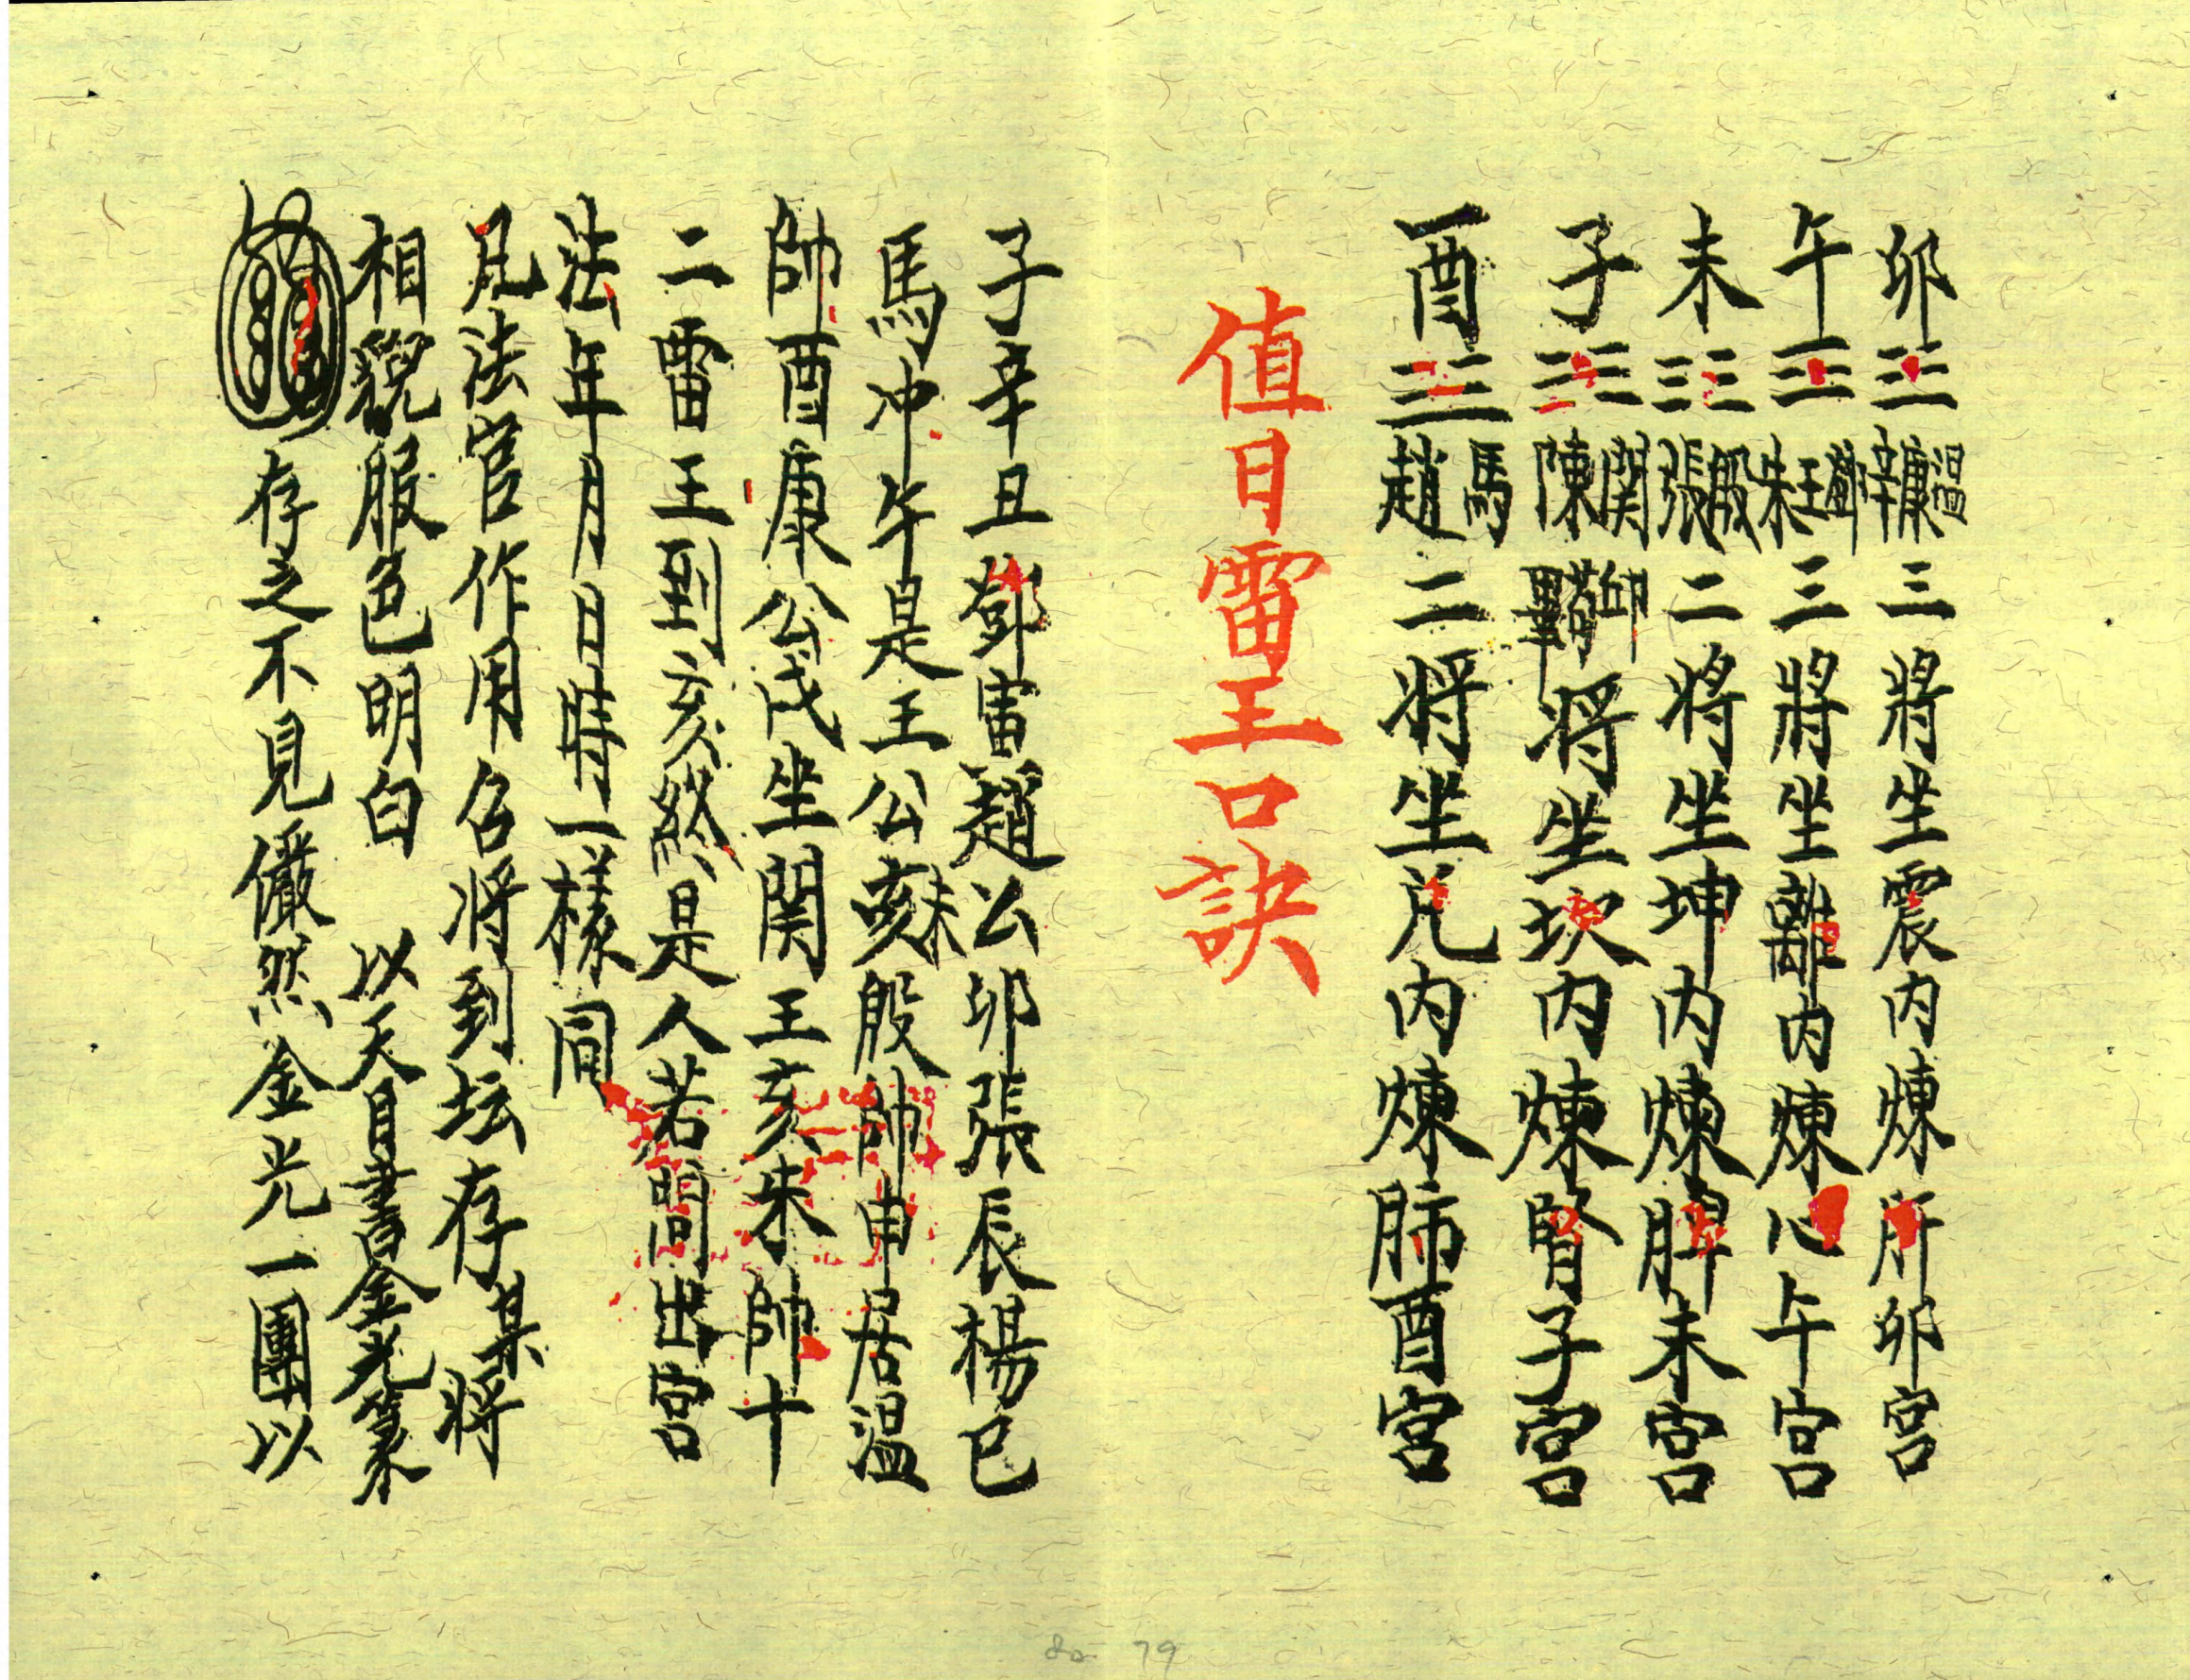 卯☳辛康溫三將坐震內煉肝卯宮
午☲朱王鄧三將坐離內煉心午宮
未☷張殷二將坐坤內煉脾未宮
子☵陳関將坐坎內煉腎子宮
酉☱趙馬二將坐兌內煉肺酉宮
值日雷王口訣
子辛丑鄧寅趙公卯張辰楊巳
馬冲午是王公未殷帥申居溫
帥酉康公戌坐関王亥朱帥十
二雷王到亥然是人若問出宮
法年月日時一樣同
凡法官作用召將到坛存某將
相貌服色明白 以天目書金光篆
存之不見儼然金光一團以
80 79